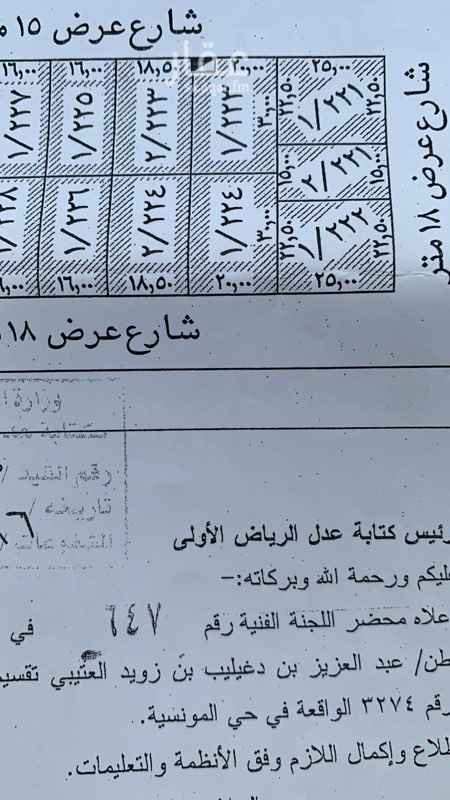 شارع عرض ١٥
١٦,٠٠ ١٦,٠٠ ١٨,٥ ٢٠,٠٠ ٢٥,٠٠
١/٢٢٧ ١/٢٢٥ ٢/٢٢٣ ١/٢٢٣ ٣٠,٠٠ ٢٢,٥٠ ١/٢٢١ ٢٢,٥٠
١٥,٠٠ ٢/٢٢١ ١٥,٠٠
١/٢٢٦ ٢/٢٢٤ ١/٢٢٤ ٣٠,٠٠ ٢٢,٥٠ ١/٢٢٢ ٢٢,٥٠
١٦,٠٠ ١٨,٥٠ ٢٠,٠٠ ٢٥,٠٠
شارع عرض ١٨ متر
شارع عرض ١٨
عقار
وزارة
رقم القيد /
تاريخه /
رئيس كتابة عدل الرياض الأولى
عليكم ورحمة الله وبركاته:-
علاه محضر اللجنة الفنية رقم ٦٤٧ في
طن/ عبد العزيز بن دغيليب بن زويد العتيبي تقسيم
رقم ٣٢٧٤ الواقعة في حي المونسية.
طلاع وإكمال اللازم وفق الأنظمة والتعليمات.